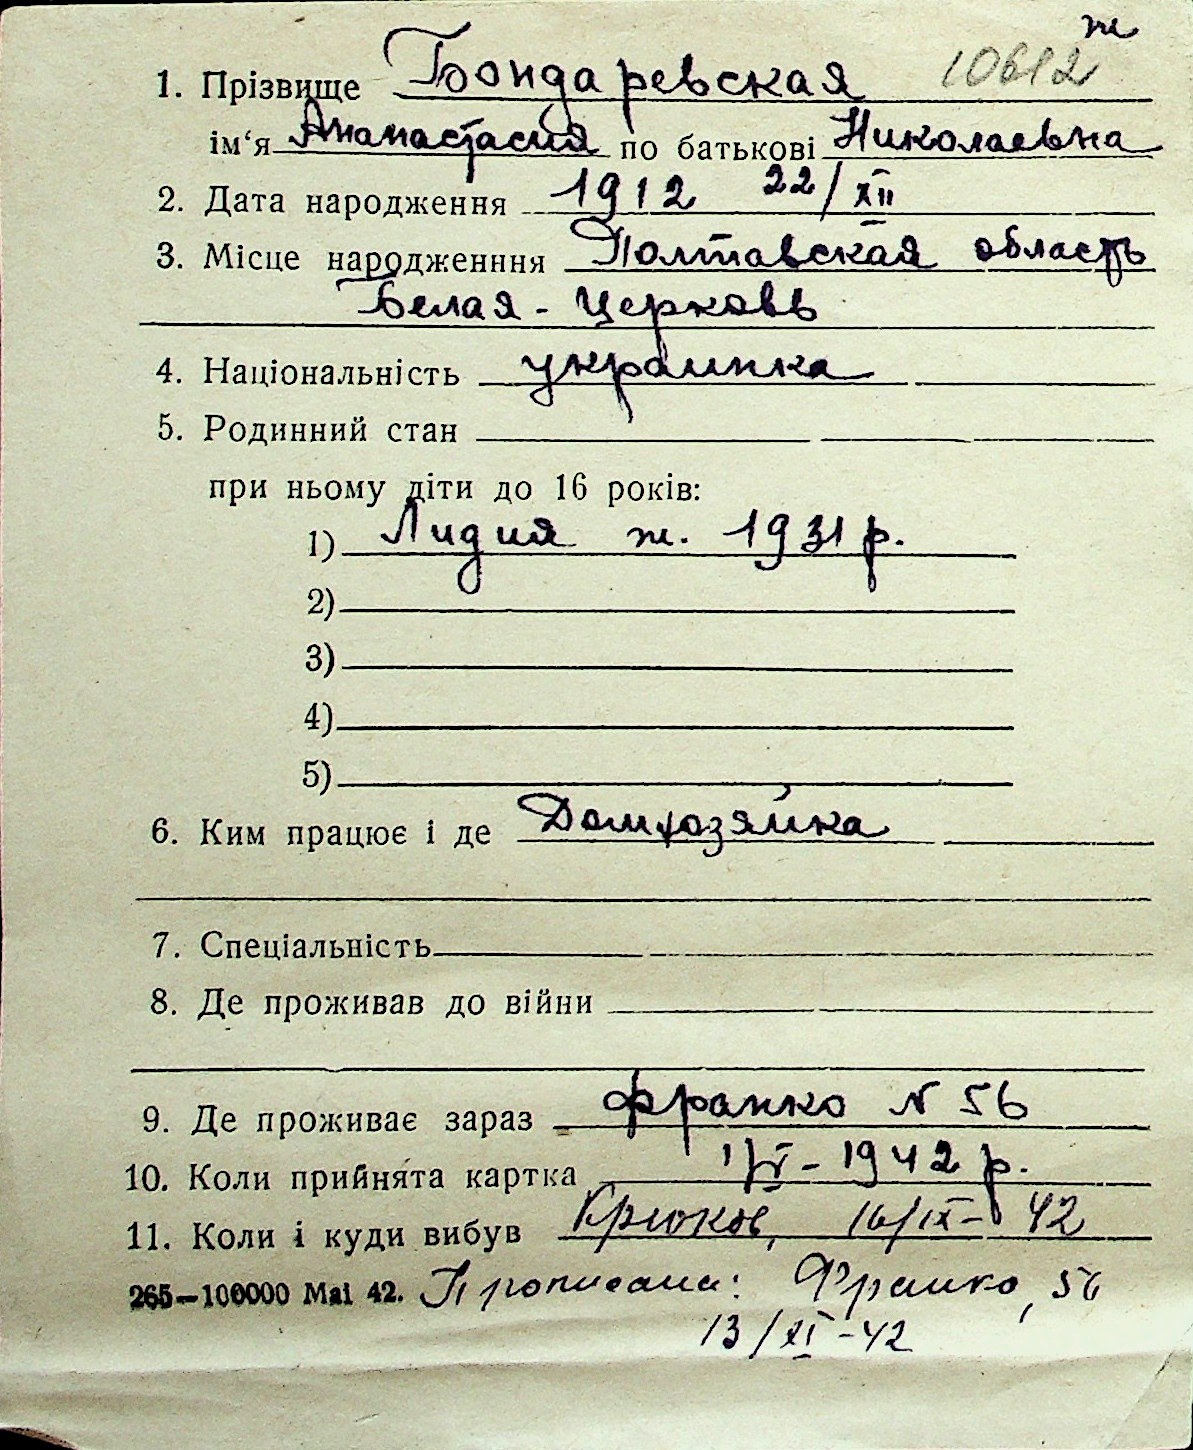 ж
1. Прізвище Бондаревская 10612
ім‘я Анастасия по батькові Николаевна
2. Дата народження 1912 22/XII
3. Місце народженння Полтавская область
Белая - Церковь
4. Національність украинка
5. Родинний стан
при ньому діти до 16 років:
1) Лидия ж. 1931 р.
2)
3)
4)
5)
6. Ким працює і де Домхозяйка
7. Спеціальність
8. Де проживав до війни
9. Де проживає зараз Франко N 56
10. Коли прийнята картка 1/V - 1942 р.
11. Коли і куди вибув Крюков, 16/IX - 42
265—100000 Mai 42. Прописана: Франко, 56
13/XI - 42